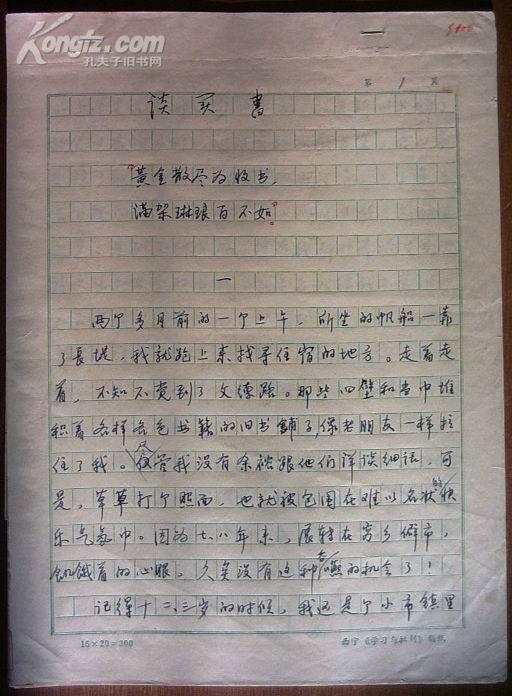 Kongfz.com
孔夫子旧书网
第 1 页
谈买书
“黄金散尽为收书，
满架琳琅百不如”。
一
两个多月前的一个上午，所坐的帆船一靠
了长堤，我就跑上来找寻住宿的地方。走着走
着，不知不觉到了文德路。那些四壁和当中堆
积着各样各色书籍的旧书铺子，像老朋友一样拉
住了我。尽管我没有余裕跟他们详谈细语，可
是，草草打个照面，也就被包围在难以名状的快
乐气氛中。因为七八年来，展转在穷乡僻市，
飢饿着的心眼，久矣没有这种的机会了！
记得十二、三岁的时候，我还是个小市镇里
15×20=300